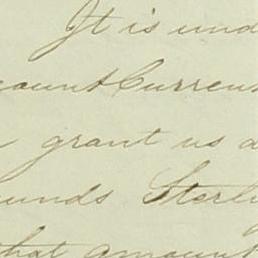 It is und
count Current
grant us a
unds Sterli
that amount